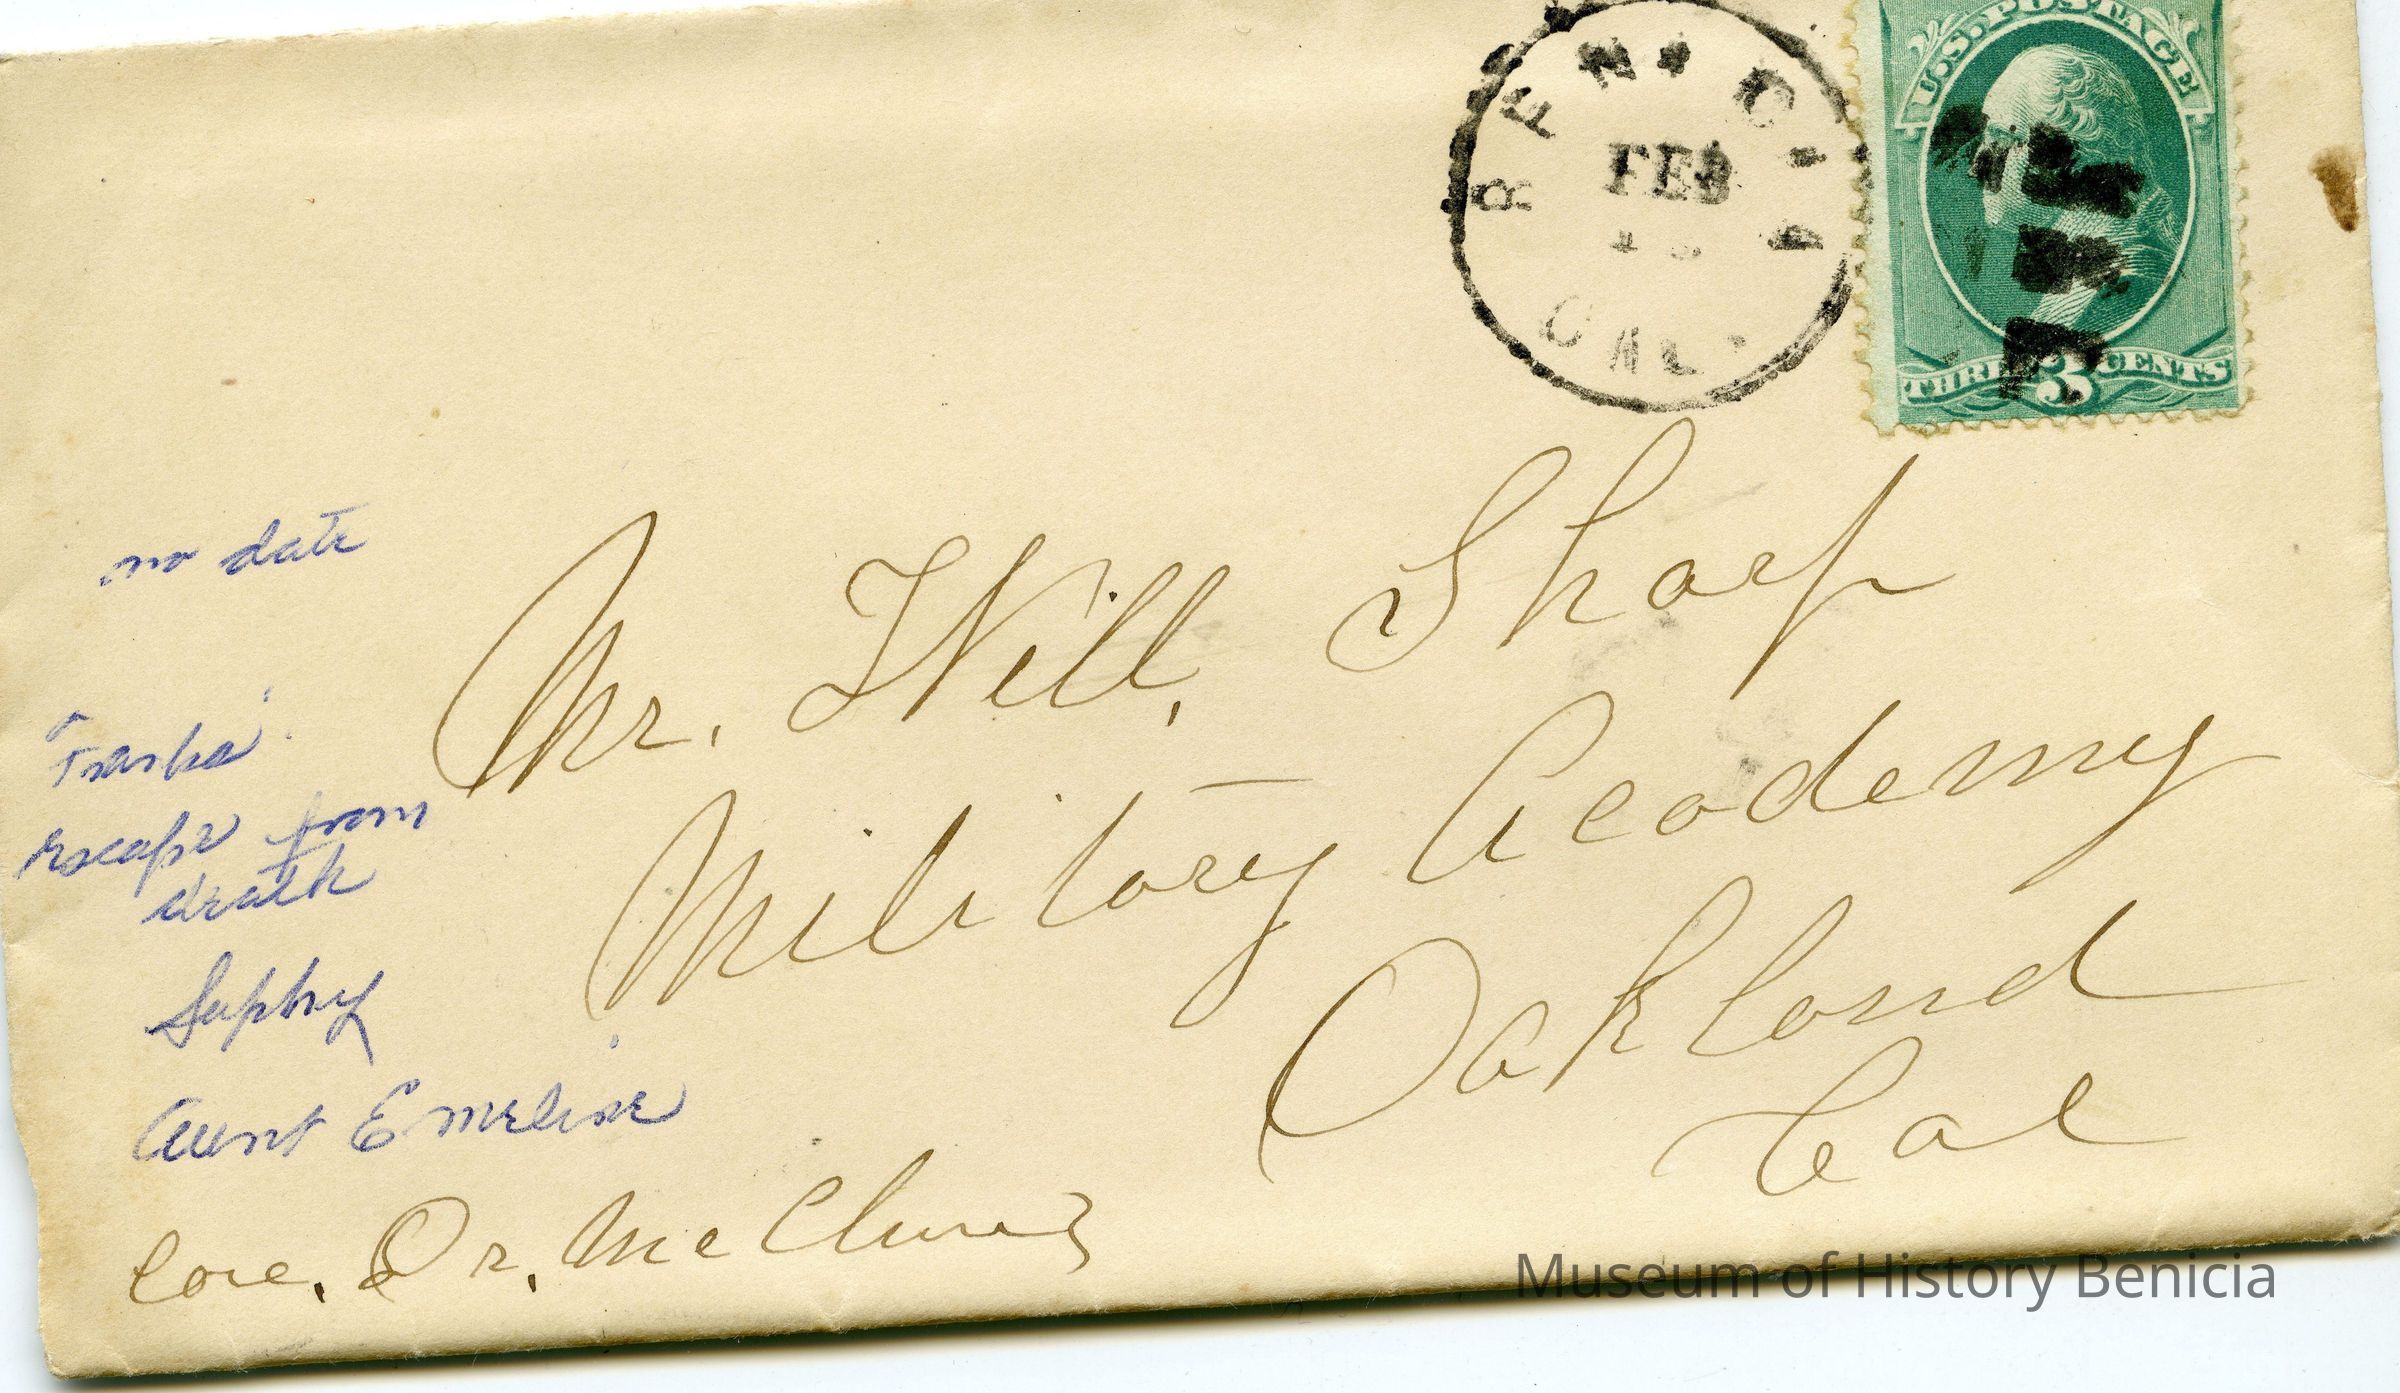 BENICIA
FEB
CAL.
U.S. POSTAGE
THREE 3 CENTS
no date
Mr. Will. Sharp
Military Academy
Oakland
Cal
escape from
death
Aunt Emeline
Care. Dr. McClure
Museum of History Benicia